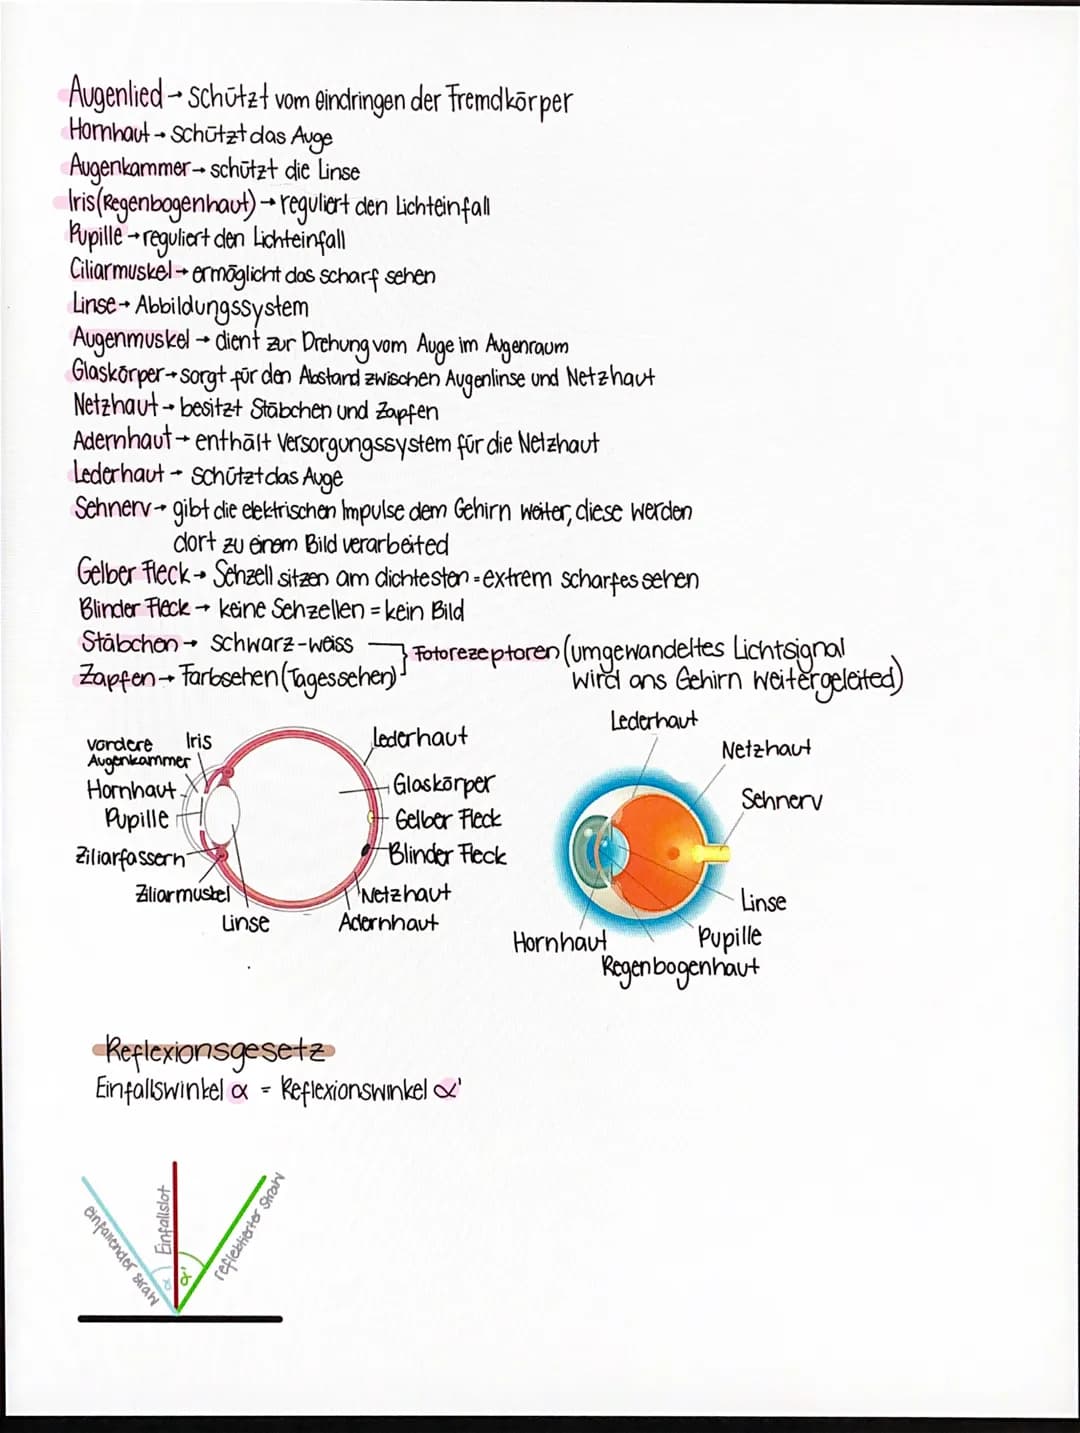 Augenlied → schützt vom eindringen der Fremdkörper
Hornhaut → schützt das Auge
Augenkammer → schützt die Linse
Iris (Regenbogenhaut) → reguliert den Lichteinfall
Pupille → reguliert den Lichteinfall
Ciliarmuskel → ermöglicht das scharf sehen
Linse → Abbildungssystem
Augenmuskel → dient zur Drehung vom Auge im Augenraum
Glaskörper → sorgt für den Abstand zwischen Augenlinse und Netzhaut
Netzhaut → besitzt Stäbchen und Zapfen
Adernhaut → enthält Versorgungssystem für die Netzhaut
Lederhaut → schützt das Auge
Sehnerv → gibt die elektrischen Impulse dem Gehirn weiter, diese werden
dort zu einem Bild verarbeited
Gelber Fleck → Sehzell sitzen am dichtesten = extrem scharfes sehen
Blinder Fleck → keine Sehzellen = kein Bild
Stäbchen → schwarz-weiss
Zapfen → Farbsehen (Tagessehen)
Fotorezeptoren (umgewandeltes Lichtsignal
wird ans Gehirn weitergeleited)
vordere
Augenkammer
Iris
Hornhaut
Pupille
Ziliarfassern
Ziliarmuskel
Linse
Lederhaut
Glaskörper
Gelber Fleck
Blinder Fleck
Netzhaut
Adernhaut
Lederhaut
Netzhaut
Sehnerv
Linse
Pupille
Hornhaut
Regenbogenhaut
Reflexionsgesetz
Einfallswinkel α = Reflexionswinkel α'
einfallender Strahl
Einfallslot
reflektierter Strahl
α
α'